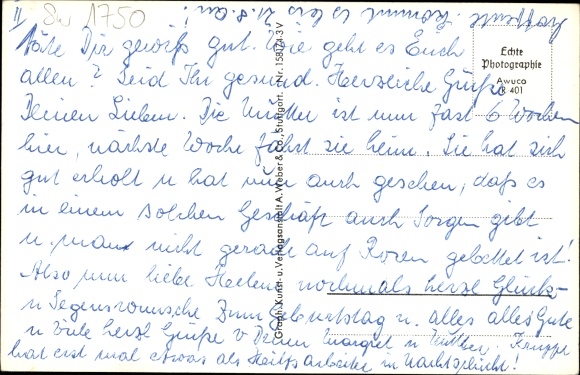 II
Sw 1750
Hoffentl. kommt es bis 21.8. an!
täte Dir gewiß gut. Wie geht es Euch
allen? Seid Ihr gesund. Herzliche Grüße
Deinen Lieben. Die Mutter ist nun fast 6 Wochen
hier, nächste Woche fährt sie heim. Sie hat sich
gut erholt u hat nun auch gesehen, daß es
in einem solchen Geschäft auch Sorgen gibt
u. man nicht gerade auf Rosen gebettet ist!
Also nun liebe Helene nochmals herzl Glück-
u Segenswünsche zum Geburtstag u. alles alles Gute
u viele herzl Grüße v Deiner Margret u Mutter.
hat erst mal etwas als Heilfsarbeiter in Nachtschicht!
Echte
Photographie
Awuco
R 401
Graph. Kunst- u. Verlagsanstalt A. Weber & Co., Stuttgart.